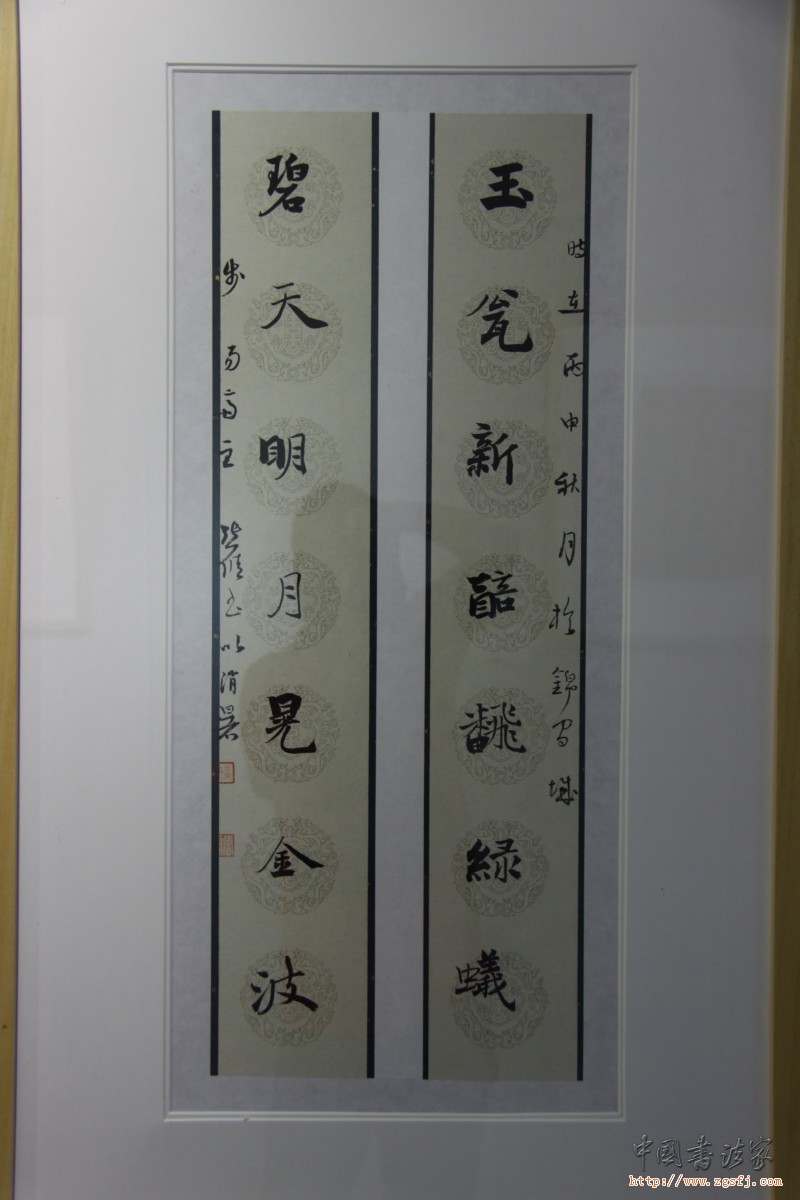 玉瓮新醅飜緑蟻
時在丙申秋月於錦官城
碧天明月晃金波
步 主 書以消暑
中國書法家
http://www.zgsfj.com